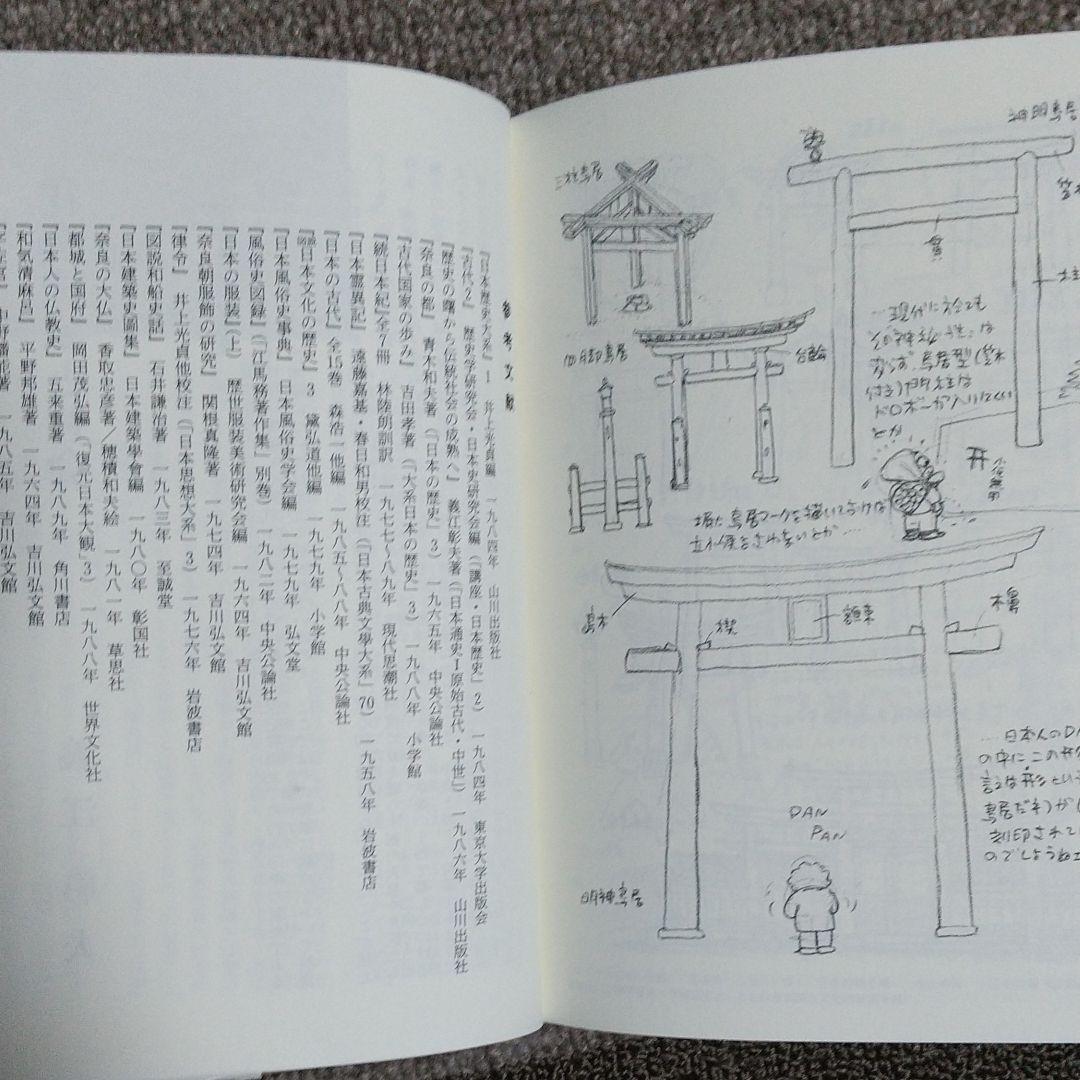 参考文献
『日本歴史大系』1　井上光貞編　一九八四年　山川出版社
『古代2』　歴史学研究会・日本史研究会編（『講座・日本歴史』2）　一九八四年　東京大学出版会
『歴史の曙から伝統社会の成熟へ』　義江彰夫著（『日本通史Ⅰ原始古代・中世』）一九八六年　山川出版社
『奈良の都』　青木和夫著（『日本の歴史』3）　一九六五年　中央公論社
『古代国家の歩み』　吉田孝著（『大系日本の歴史』3）　一九八八年　小学館
『続日本紀』全7冊　林陸朗訓訳　一九七七〜八九年　現代思潮社
『日本霊異記』　遠藤嘉基・春日和男校注（『日本古典文學大系』70）　一九五八年　岩波書店
『日本の古代』全15巻　森浩一他編　一九八五〜八八年　中央公論社
『図説日本文化の歴史』3　黛弘道他編　一九七九年　小学館
『日本風俗史事典』　日本風俗史学会編　一九七九年　弘文堂
『風俗史図録』（『江馬務著作集』別巻）　一九八二年　中央公論社
『日本の服装』（上）　歴世服装美術研究会編　一九六四年　吉川弘文館
『奈良朝服飾の研究』　関根真隆著　一九七四年　吉川弘文館
『律令』　井上光貞他校注（『日本思想大系』3）　一九七六年　岩波書店
『図説和船史話』　石井謙治著　一九八三年　至誠堂
『日本建築史圖集』　日本建築學會編　一九八〇年　彰国社
『奈良の大仏』　香取忠彦著／穂積和夫絵　一九八一年　草思社
『都城と国府』　岡田茂弘編（『復元日本大観』3）　一九八八年　世界文化社
『日本人の仏教史』　五来重著　一九八九年　角川書店
『和気清麻呂』　平野邦雄著　一九六四年　吉川弘文館
中野幡能著　一九八五年　吉川弘文館
神明鳥居
貫
三柱鳥居
四脚鳥居
台輪
…現代に於ても
その神秘性は
変らず、鳥居型(笠木
付き)門柱は
ドロボーが入りにくい
とか
小便無用
塀に鳥居マークを描いておけば
立小便をされないとか…
島木
楔
額束
木鼻
明神鳥居
PAN
PAN
…日本人のD
の中にこの
鳥居だネ)が
刻印されて
のでしょうね